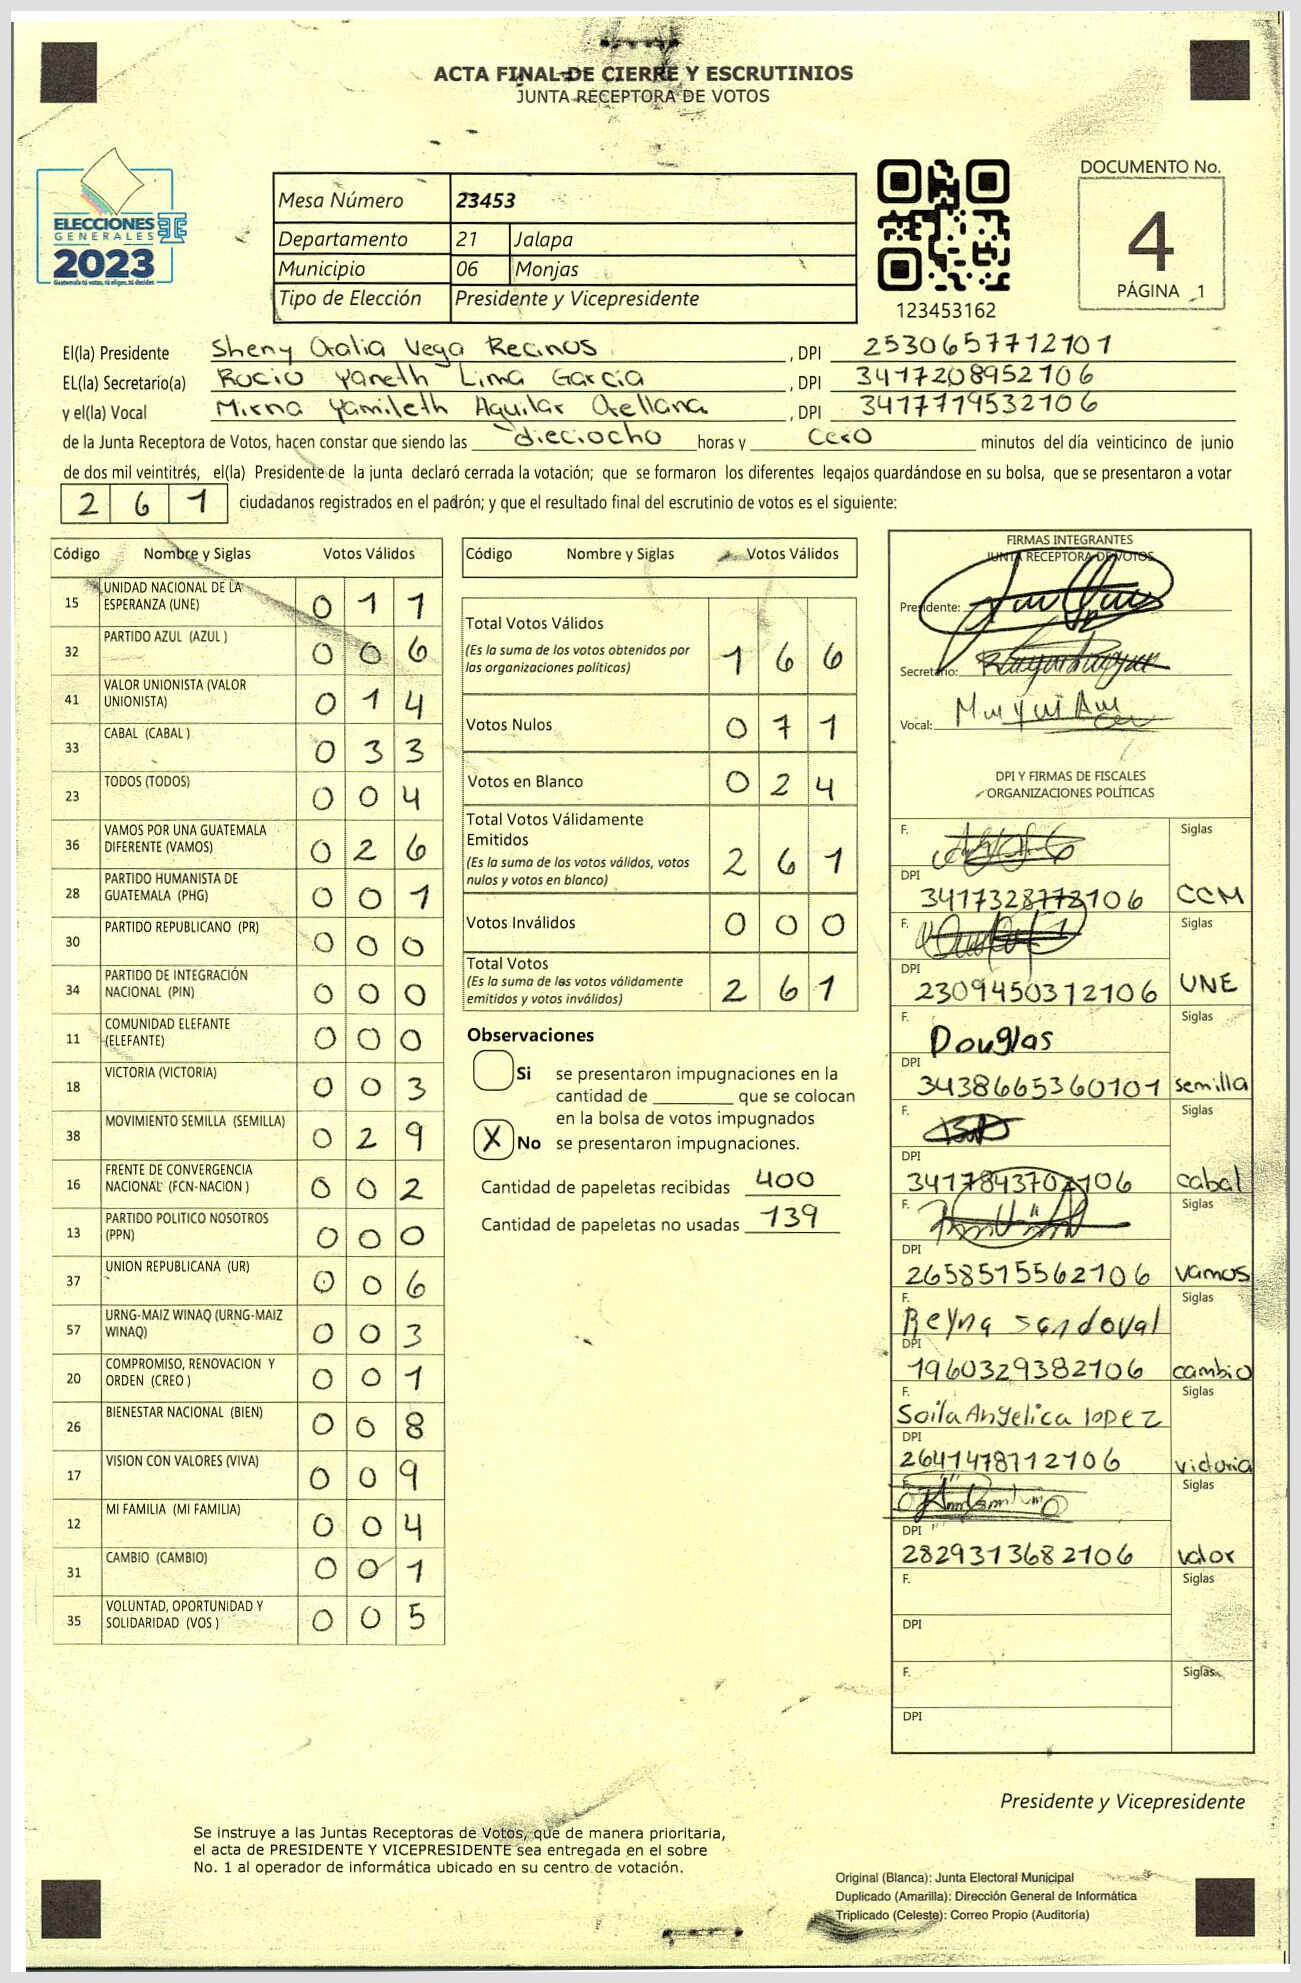 ACTA FINAL DE CIERRE Y ESCRUTINIOS
JUNTA RECEPTORA DE VOTOS
ELECCIONES
GENERALES
2023
Guatemala tú votas, tú eliges, tú decides
Mesa Número 23453
Departamento 21 Jalapa
Municipio 06 Monjas
Tipo de Elección Presidente y Vicepresidente
123453162
DOCUMENTO No.
4
PÁGINA 1
El(la) Presidente Sheny Oralia Vega Recinos , DPI 2530657712101
EL(la) Secretario(a) Rocio Yaneth Lima Garcia , DPI 3417208952106
y el(la) Vocal Mirna Yamileth Aguilar Orellana , DPI 3417719532106
de la Junta Receptora de Votos, hacen constar que siendo las dieciocho horas y cero minutos del día veinticinco de junio
de dos mil veintitrés, el(la) Presidente de la junta declaró cerrada la votación; que se formaron los diferentes legajos guardándose en su bolsa, que se presentaron a votar
261 ciudadanos registrados en el padrón; y que el resultado final del escrutinio de votos es el siguiente:
Código Nombre y Siglas Votos Válidos
15 UNIDAD NACIONAL DE LA ESPERANZA (UNE) 011
32 PARTIDO AZUL (AZUL ) 006
41 VALOR UNIONISTA (VALOR UNIONISTA) 014
33 CABAL (CABAL ) 033
23 TODOS (TODOS) 004
36 VAMOS POR UNA GUATEMALA DIFERENTE (VAMOS) 026
28 PARTIDO HUMANISTA DE GUATEMALA (PHG) 001
30 PARTIDO REPUBLICANO (PR) 000
34 PARTIDO DE INTEGRACIÓN NACIONAL (PIN) 000
11 COMUNIDAD ELEFANTE (ELEFANTE) 000
18 VICTORIA (VICTORIA) 003
38 MOVIMIENTO SEMILLA (SEMILLA) 029
16 FRENTE DE CONVERGENCIA NACIONAL (FCN-NACION ) 002
13 PARTIDO POLITICO NOSOTROS (PPN) 000
37 UNION REPUBLICANA (UR) 006
57 URNG-MAIZ WINAQ (URNG-MAIZ WINAQ) 003
20 COMPROMISO, RENOVACION Y ORDEN (CREO ) 001
26 BIENESTAR NACIONAL (BIEN) 008
17 VISION CON VALORES (VIVA) 009
12 MI FAMILIA (MI FAMILIA) 004
31 CAMBIO (CAMBIO) 001
35 VOLUNTAD, OPORTUNIDAD Y SOLIDARIDAD (VOS ) 005
Código Nombre y Siglas Votos Válidos
Total Votos Válidos 166
(Es la suma de los votos obtenidos por
las organizaciones políticas)
Votos Nulos 071
Votos en Blanco 024
Total Votos Válidamente
Emitidos 261
(Es la suma de los votos válidos, votos
nulos y votos en blanco)
Votos Inválidos 000
Total Votos 261
(Es la suma de los votos válidamente
emitidos y votos inválidos)
Observaciones
Si se presentaron impugnaciones en la
cantidad de ________ que se colocan
en la bolsa de votos impugnados
X No se presentaron impugnaciones.
Cantidad de papeletas recibidas 400
Cantidad de papeletas no usadas 139
FIRMAS INTEGRANTES
JUNTA RECEPTORA DE VOTOS
Presidente:
Secretario:
Vocal:
DPI Y FIRMAS DE FISCALES
ORGANIZACIONES POLÍTICAS
F. Siglas
DPI
3417328772106 CCM
F. Siglas
DPI
2309450312106 UNE
F. Douglas Siglas
DPI
3438665360101 semilla
F. Siglas
DPI
3417843702106 cabal
F. Siglas
DPI
2658515562106 vamos
F. Siglas
Reyna Sandoval
DPI
1960329382106 cambio
F. Siglas
Soila Angelica lopez
DPI
2641478112106 victoria
F. Siglas
DPI
2829313682106 valor
F. Siglas
DPI
F. Siglas
DPI
Presidente y Vicepresidente
Se instruye a las Juntas Receptoras de Votos, que de manera prioritaria,
el acta de PRESIDENTE Y VICEPRESIDENTE sea entregada en el sobre
No. 1 al operador de informática ubicado en su centro de votación.
Original (Blanca): Junta Electoral Municipal
Duplicado (Amarilla): Dirección General de Informática
Triplicado (Celeste): Correo Propio (Auditoría)